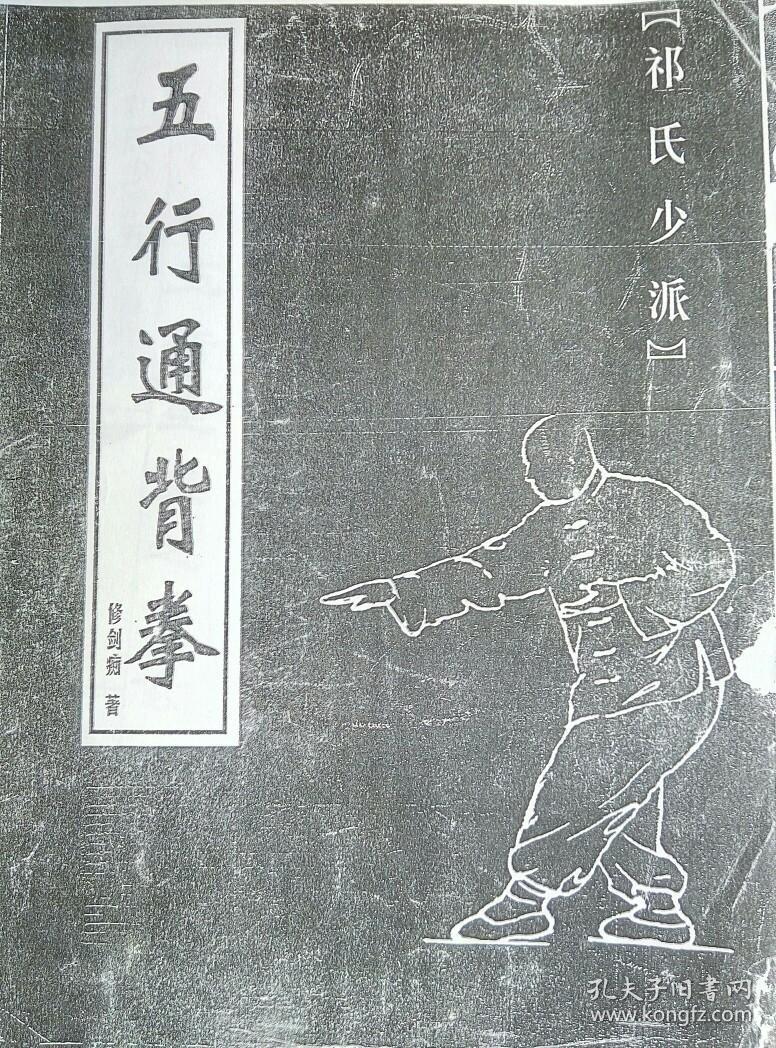 【祁氏少派】
五行通背拳
修剑痴 著
孔夫子旧书网
www.kongfz.com